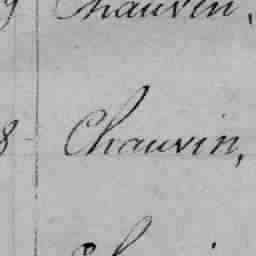 9 Chauvin,
8 Chauvin,